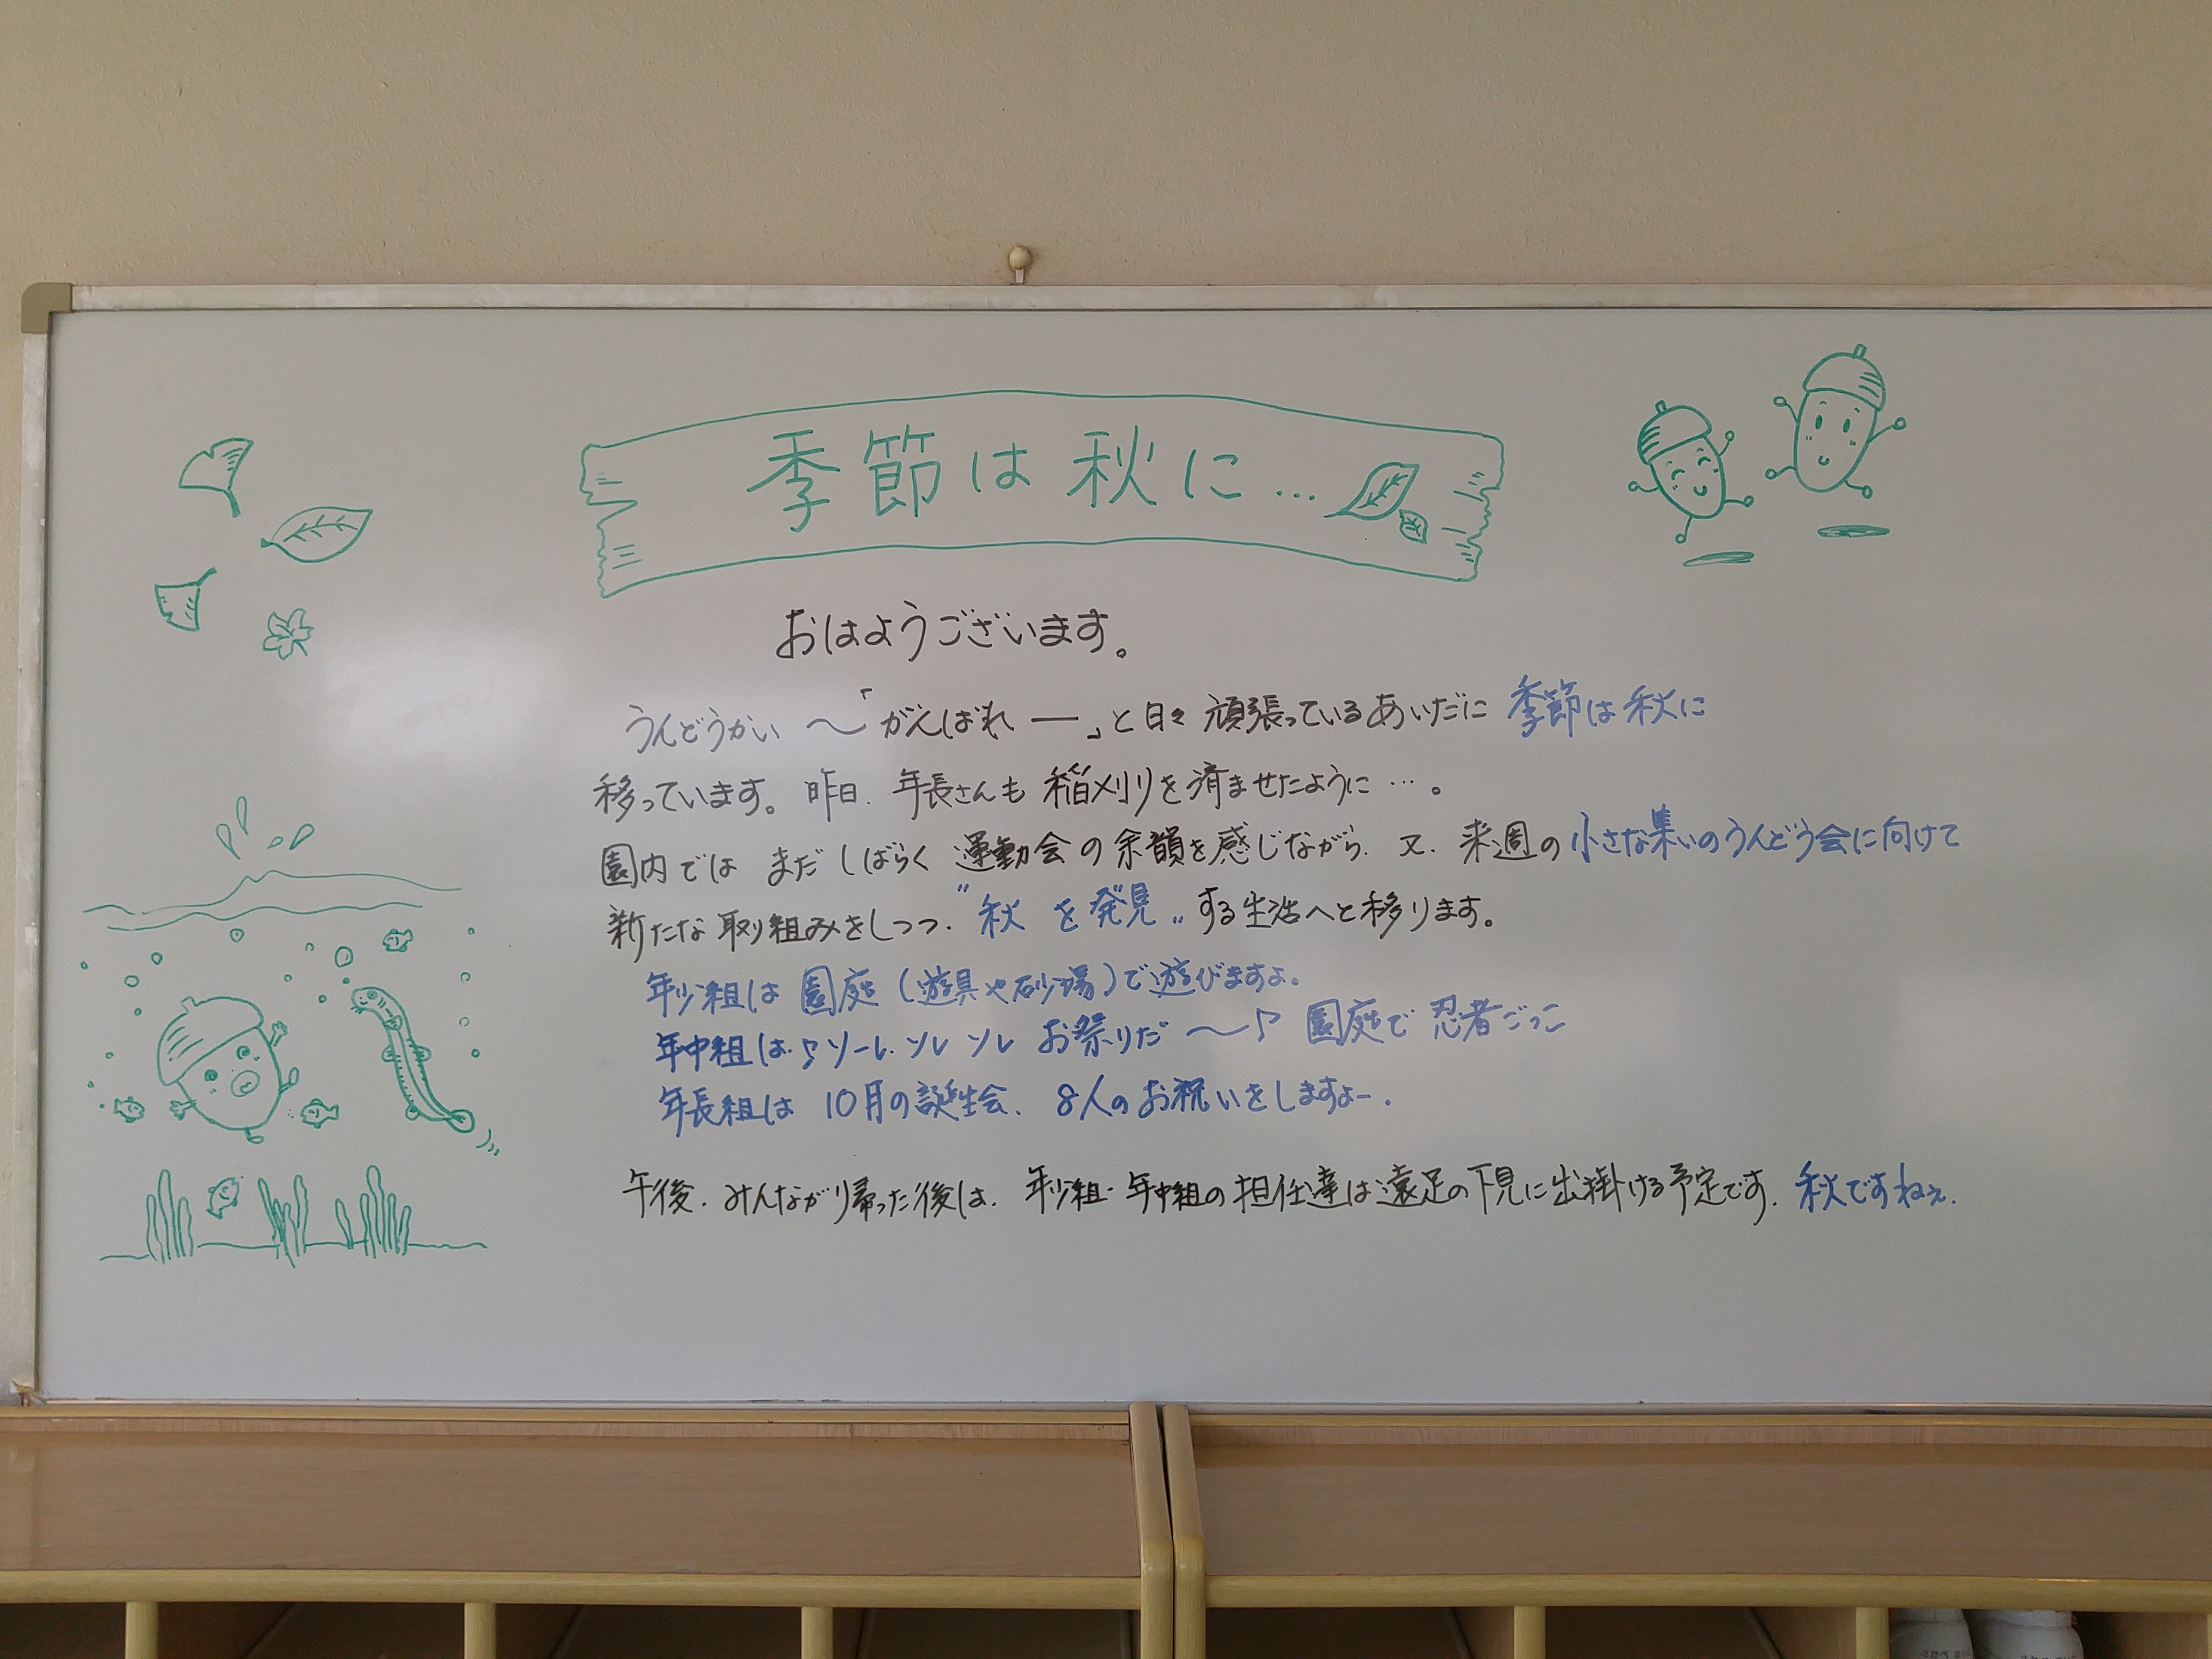 季節は秋に…
おはようございます。
うんどうかい 〜「がんばれ ー」と日々 頑張っているあいだに 季節は秋に
移っています。昨日、年長さんも 稲刈りを済ませたように…。
園内では まだしばらく 運動会の余韻を感じながら、又、来週の小さな集いのうんどう会に向けて
新たな取り組みをしつつ、"秋 を発見" する生活へと移ります。
年少組は 園庭(遊具や砂場)で遊びますよ。
年中組は、♪ソーレ、ソレ ソレ お祭りだ 〜♪ 園庭で 忍者ごっこ
年長組は 10月の誕生会、8人のお祝いをしますよー。
午後、みんなが帰った後は、年少組・年中組の担任達は遠足の下見に出掛ける予定です。秋ですねぇ。